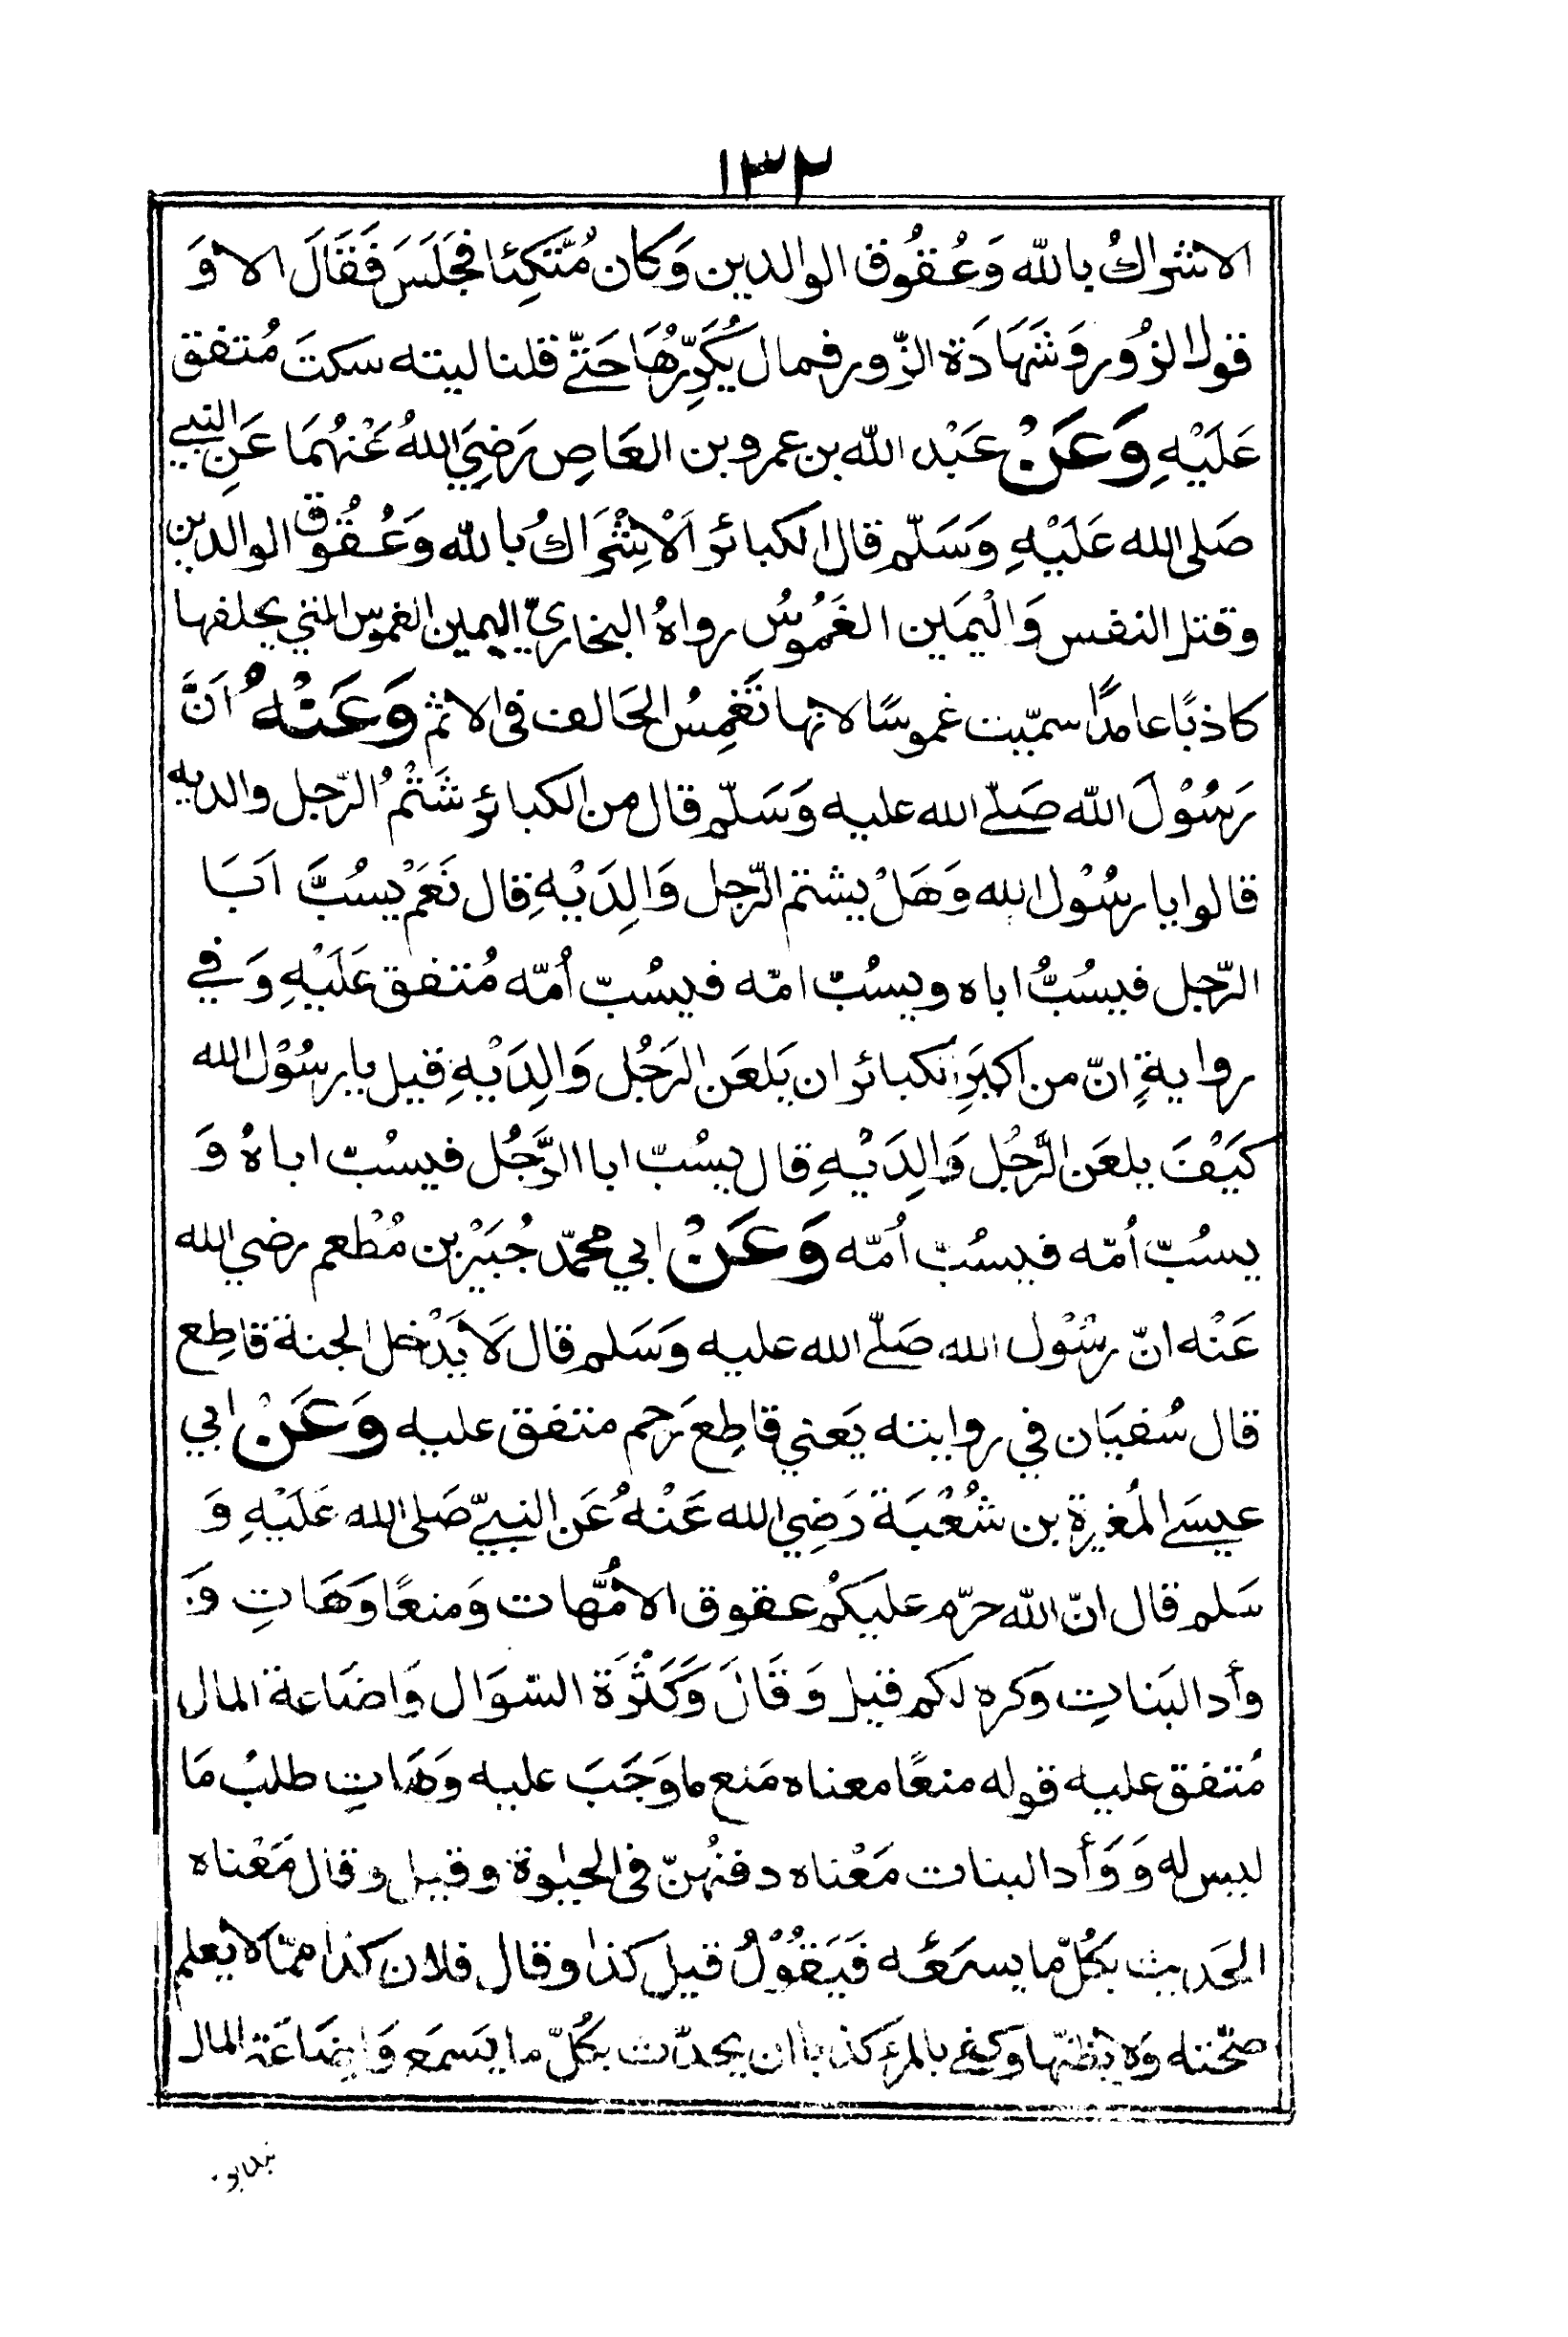 ١٣٢
الاشراكُ بالله وَعُقُوق الوالدين وَكان مُتَّكِئا فجَلَسَ فَقَالَ الا وَ
قول الزُور وَشَهَادَة الزّور فمال يُكَرِّرُهَا حَتّٰے قلنا ليته سكتَ مُتفق
عَلَيْهِ وَعَنْ عَبْد الله بن عمرو بن العَاصِ رَضِيَ اللهُ عَنْهُمَا عَنِ النبي
صَلى الله عَلَيْهِ وَسَلّم قال الكبائر اَلْاِشْرَاكُ بالله وَعُقُوق الوالدين
وقتل النفس وَالْيمَين الغَمُوسُ رواهُ البخاريّ اليمين الغموس التي يحلفها
كاذبًا عامدًا سمّيت غموسًا لانها تَغمِسُ الحَالف في الاثم وَعَنْهُ اَنَّ
رَسُوْلَ الله صَلّے الله عليه وَسَلّم قال من الكبائر شَتْمُ الرّجل والديه
قالوا يا رسُوْل الله وَهَلْ يشتم الرّجل وَالِدَيْهِ قال نَعَمْ يسُبُّ اَبَا
الرّجل فيسُبُّ اباه ويسُبّ امّه فيسُبّ اُمّه مُتفق عَلَيْهِ وَفي
روايةٍ انّ من اكبَرِ الكبائر ان يَلعَن الرَجُل وَالِدَيْهِ قيل يا رسُوْل الله
كَيَفْ يلعَن الرَّجُل وَالِدَيْهِ قال يسُبّ ابا الرَّجُل فيسُبّ اباهُ وَ
يسُبّ اُمّه فيسُبّ اُمّه وَعَنْ ابي محمّد جُبَيْر بن مُطْعم رضي الله
عَنْه انّ رسُوْل الله صَلّے الله عليه وَسَلم قال لَا يَدْخل الجنة قاطِع
قال سُفيَان في روايته يَعني قاطِع رَحم متفق عليه وَعَنْ ابي
عيسَے المُغيرة بن شُعْبَة رَضِي الله عَنْهُ عَن النبيّ صَلى الله عَلَيْهِ وَ
سَلم قال انّ الله حرّم عليكُم عقوق الامُّهات وَمنعًا وَهَاتِ وَ
وأد البَناتِ وكره لكم قيل وَقَالَ وَكَثْرَة السّوَال وَاضَاعة المال
مُتفق عليه قوله منعًا معناه مَنع ما وَجَبَ عليه وَهَاتِ طلبُ مَا
ليس له وَوَأد البنات مَعْناه دفنُهنّ في الحيٰوة وقيل وقال مَعْناه
الحَديث بكُلّ ما يسمَعُه فَيَقُوْلُ قيل كذا وقال فلان كذا ممّا لا يعلم
صحّته وَلا يظنّها وكفے بالمرء كذبا ان يحدّث بكُلّ ما يَسمَع وَاِضَاعَة المال